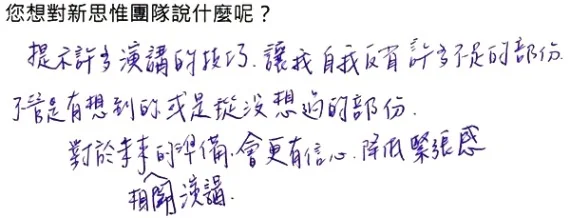 您想對新思惟團隊說什麼呢？
提示許多演講的技巧，讓我自我反省許多不足的部份
不管是有想到的或是從沒想過的部份．
對於未來的準備，會更有信心．降低緊張感
相關演講．